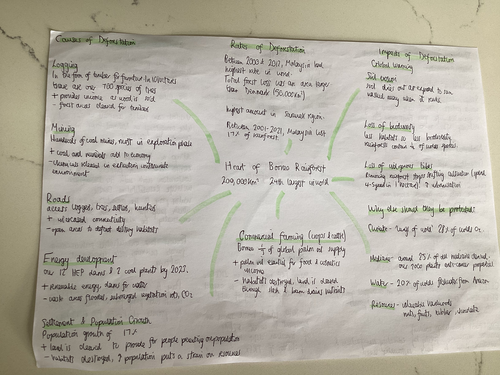 Causes of Deforestation
Logging
In the form of timber for furniture. In 10 hectares
there are over 700 species of trees
+ provides income as wood is sold
- forest areas cleared for timber
Mining
Hundreds of coal mines, most in exploration phase
+ coal and minerals add to economy
- clearing
environment
Roads
access loggers, tribes, settlers,
+ increased connectivity
- open areas to habitats
Energy development
over 12 HEP dams & 2 coal plants by 2025,
+ Renewable energy, dams for water
- vast areas flooded, submerged vegetation rots, CO₂
Settlement & Population Growth
Population growth of 17%
+ land is cleared to provide for people
- habitats destroyed, & population puts a strain on resources
Rates of Deforestation
Between 2000 & 2012, Malaysia had
highest rate in world
Total forest loss was an area larger
than Denmark (50,000km²)
highest amount in Sarawak region.
Between 2001-2021, Malaysia lost
17% of rainforest.
Heart of Borneo Rainforest
200,000km² 24th largest in world
Commercial farming (crops & cattle)
Borneo of global palm oil supply
+ palm oil essential for food & cosmetics
income
- Habitats destroyed, land is cleared
through slash & burn, drains nutrients
Impacts of Deforestation
Global warming
Soil erosion
soil dries out as exposed to sun
washed away when it rains
Loss of biodiversity
less habitats so less biodiversity
Rainforest contain of world species
Loss of indigenous tribes
Why else should they be protected
Climate - 'lungs of world' 28% of world's O₂
Medicine - around 25% of all medicine derived
over 2000 plants anti-cancer properties
Water - 20% of world's freshwater from Amazon
Resources - valuable hardwoods
nuts, fruits, rubber,